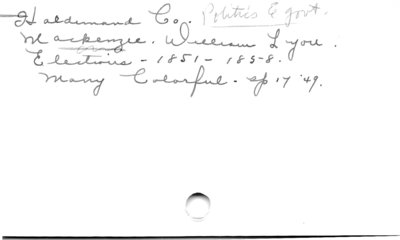 Haldimand Co. Politics & govt.
Mackenzie. William Lyon.
Elections - 1851 - 1858.
Many Colorful. Sp 17 '49.